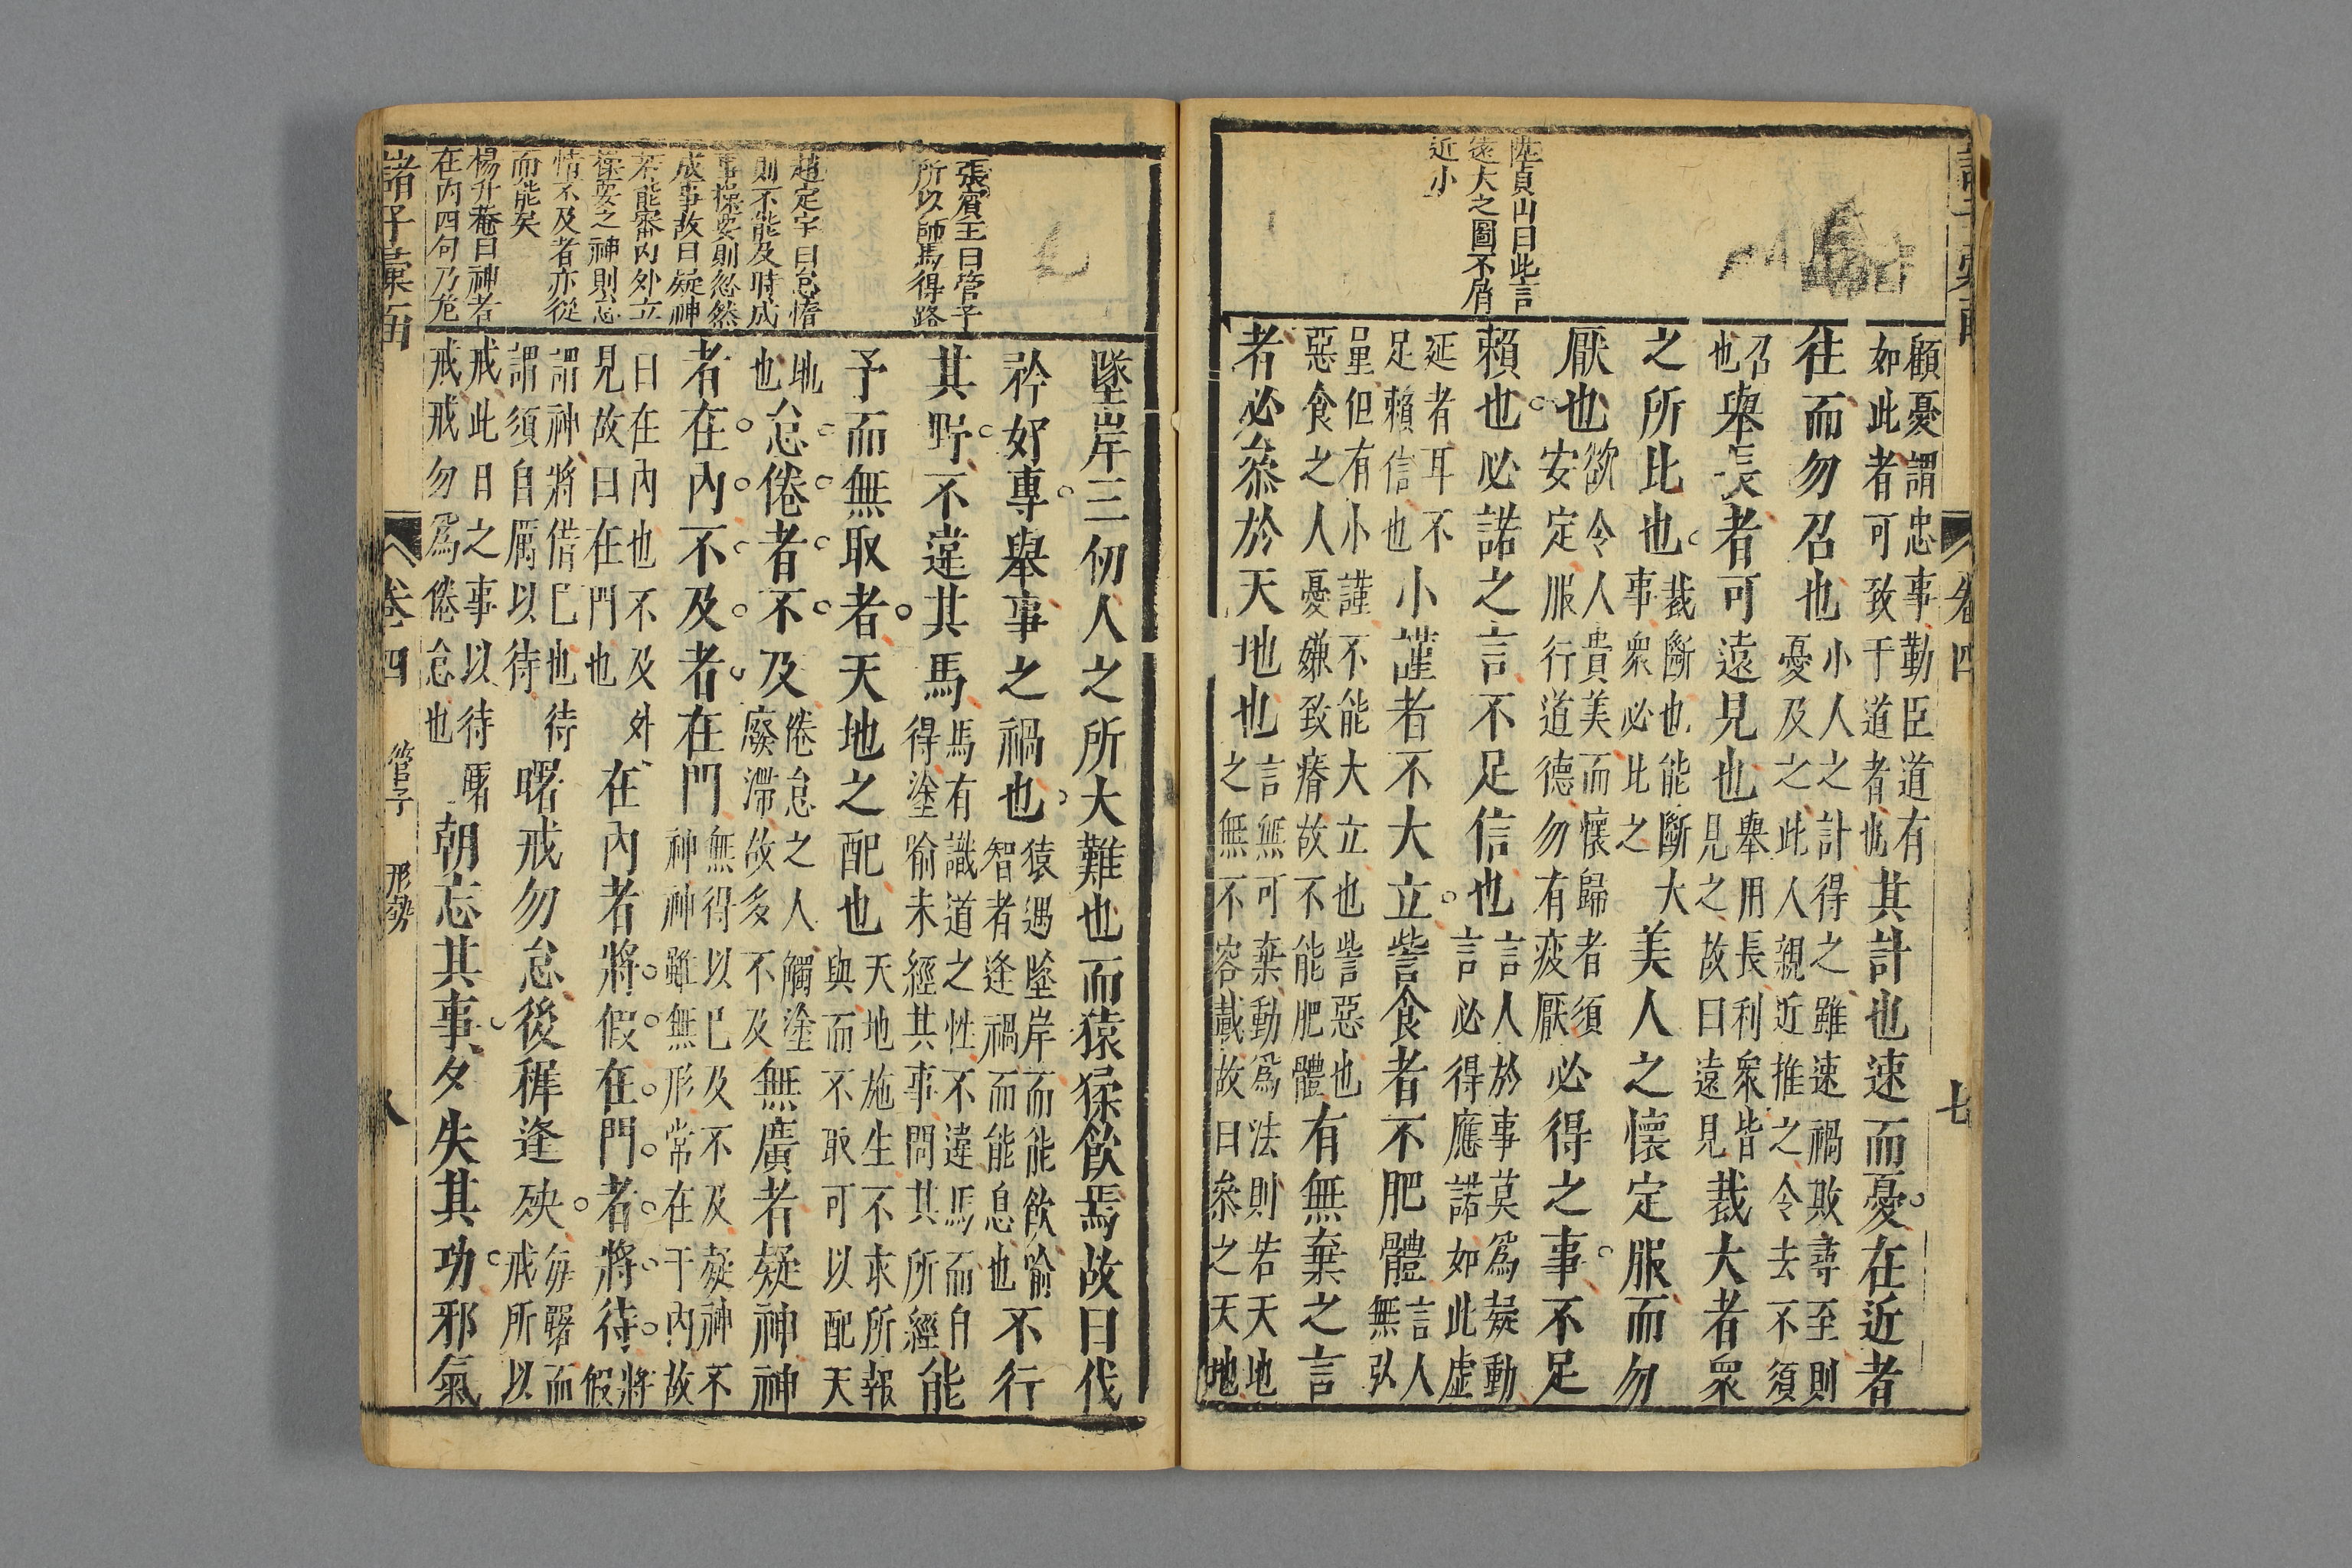 陸貞山曰此言
遠大之圖不屑
近小
顧憂謂忠事勤臣道有
如此者可致于道者也
其計也速而憂在近者
往而勿召也
小人之計得之雖速禍敗尋至則
憂及之此人親近推之令去不須
召
也
舉長者可遠見也
舉用長利衆皆
見之故曰遠見
裁大者眾
之所比也
裁斷也能斷大
事衆必比之
美人之懷定服而勿
厭也
欲令人貴美而懷歸者須
安定服行道德勿有疲厭
必得之事不足
賴也必諾之言不足信也
言人於事莫爲疑動
言必得應諾如此虛
延者耳不
足賴信也
小謹者不大立訾食者不肥體
言人
無弘
量但有小謹不能大立也訾惡也
惡食之人憂嫌致瘠故不能肥體
有無棄之言
者必叅於天地也
言無可棄動爲法則若天地
之無不容載故曰叅之天地
卷四
七
張賓王曰管子
所以師馬得路
趙定宇曰怠惰
則不能及時成
事操要則忽然
成事故曰疑神
若能審內外立
樞要之神則怠
惰不及者亦從
而能矣
楊升菴曰神者
在內四句乃危
墜岸三仞人之所大難也而猿猱飲焉故曰伐
矜好專舉事之禍也
猿遇墜岸而能飲喻
智者逢禍而能息也
不行
其野不違其馬
馬有識道之性不違馬而自
得塗喻未經其事問其所經
能
予而無取者天地之配也
天地施生不求所報
與而不取可以配天
地
也
怠倦者不及
倦怠之人觸塗
廢滯故多不及
無廣者疑神神
者在內不及者在門
無得以已及不及疑神不
神神雖無形常在于內故
曰在內也不及外
見故曰在門也
在內者將假在門者將待
將
假
謂神將借巳也待
謂須自厲以待
曙戒勿怠後稺逢殃
每曙而
戒所以
戒此日之事以待曙
戒戒勿爲倦怠也
朝忘其事夕失其功邪氣
諸子彙函
卷四
管子
形勢
八